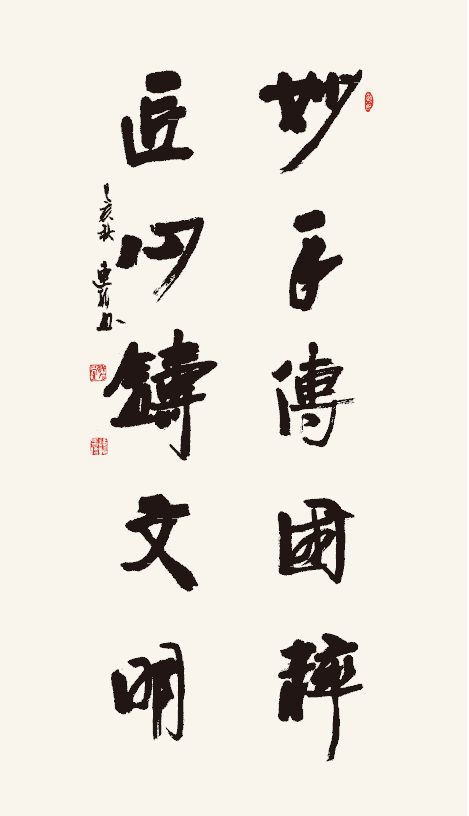 妙手傳國粹
匠心鑄文明
己亥秋